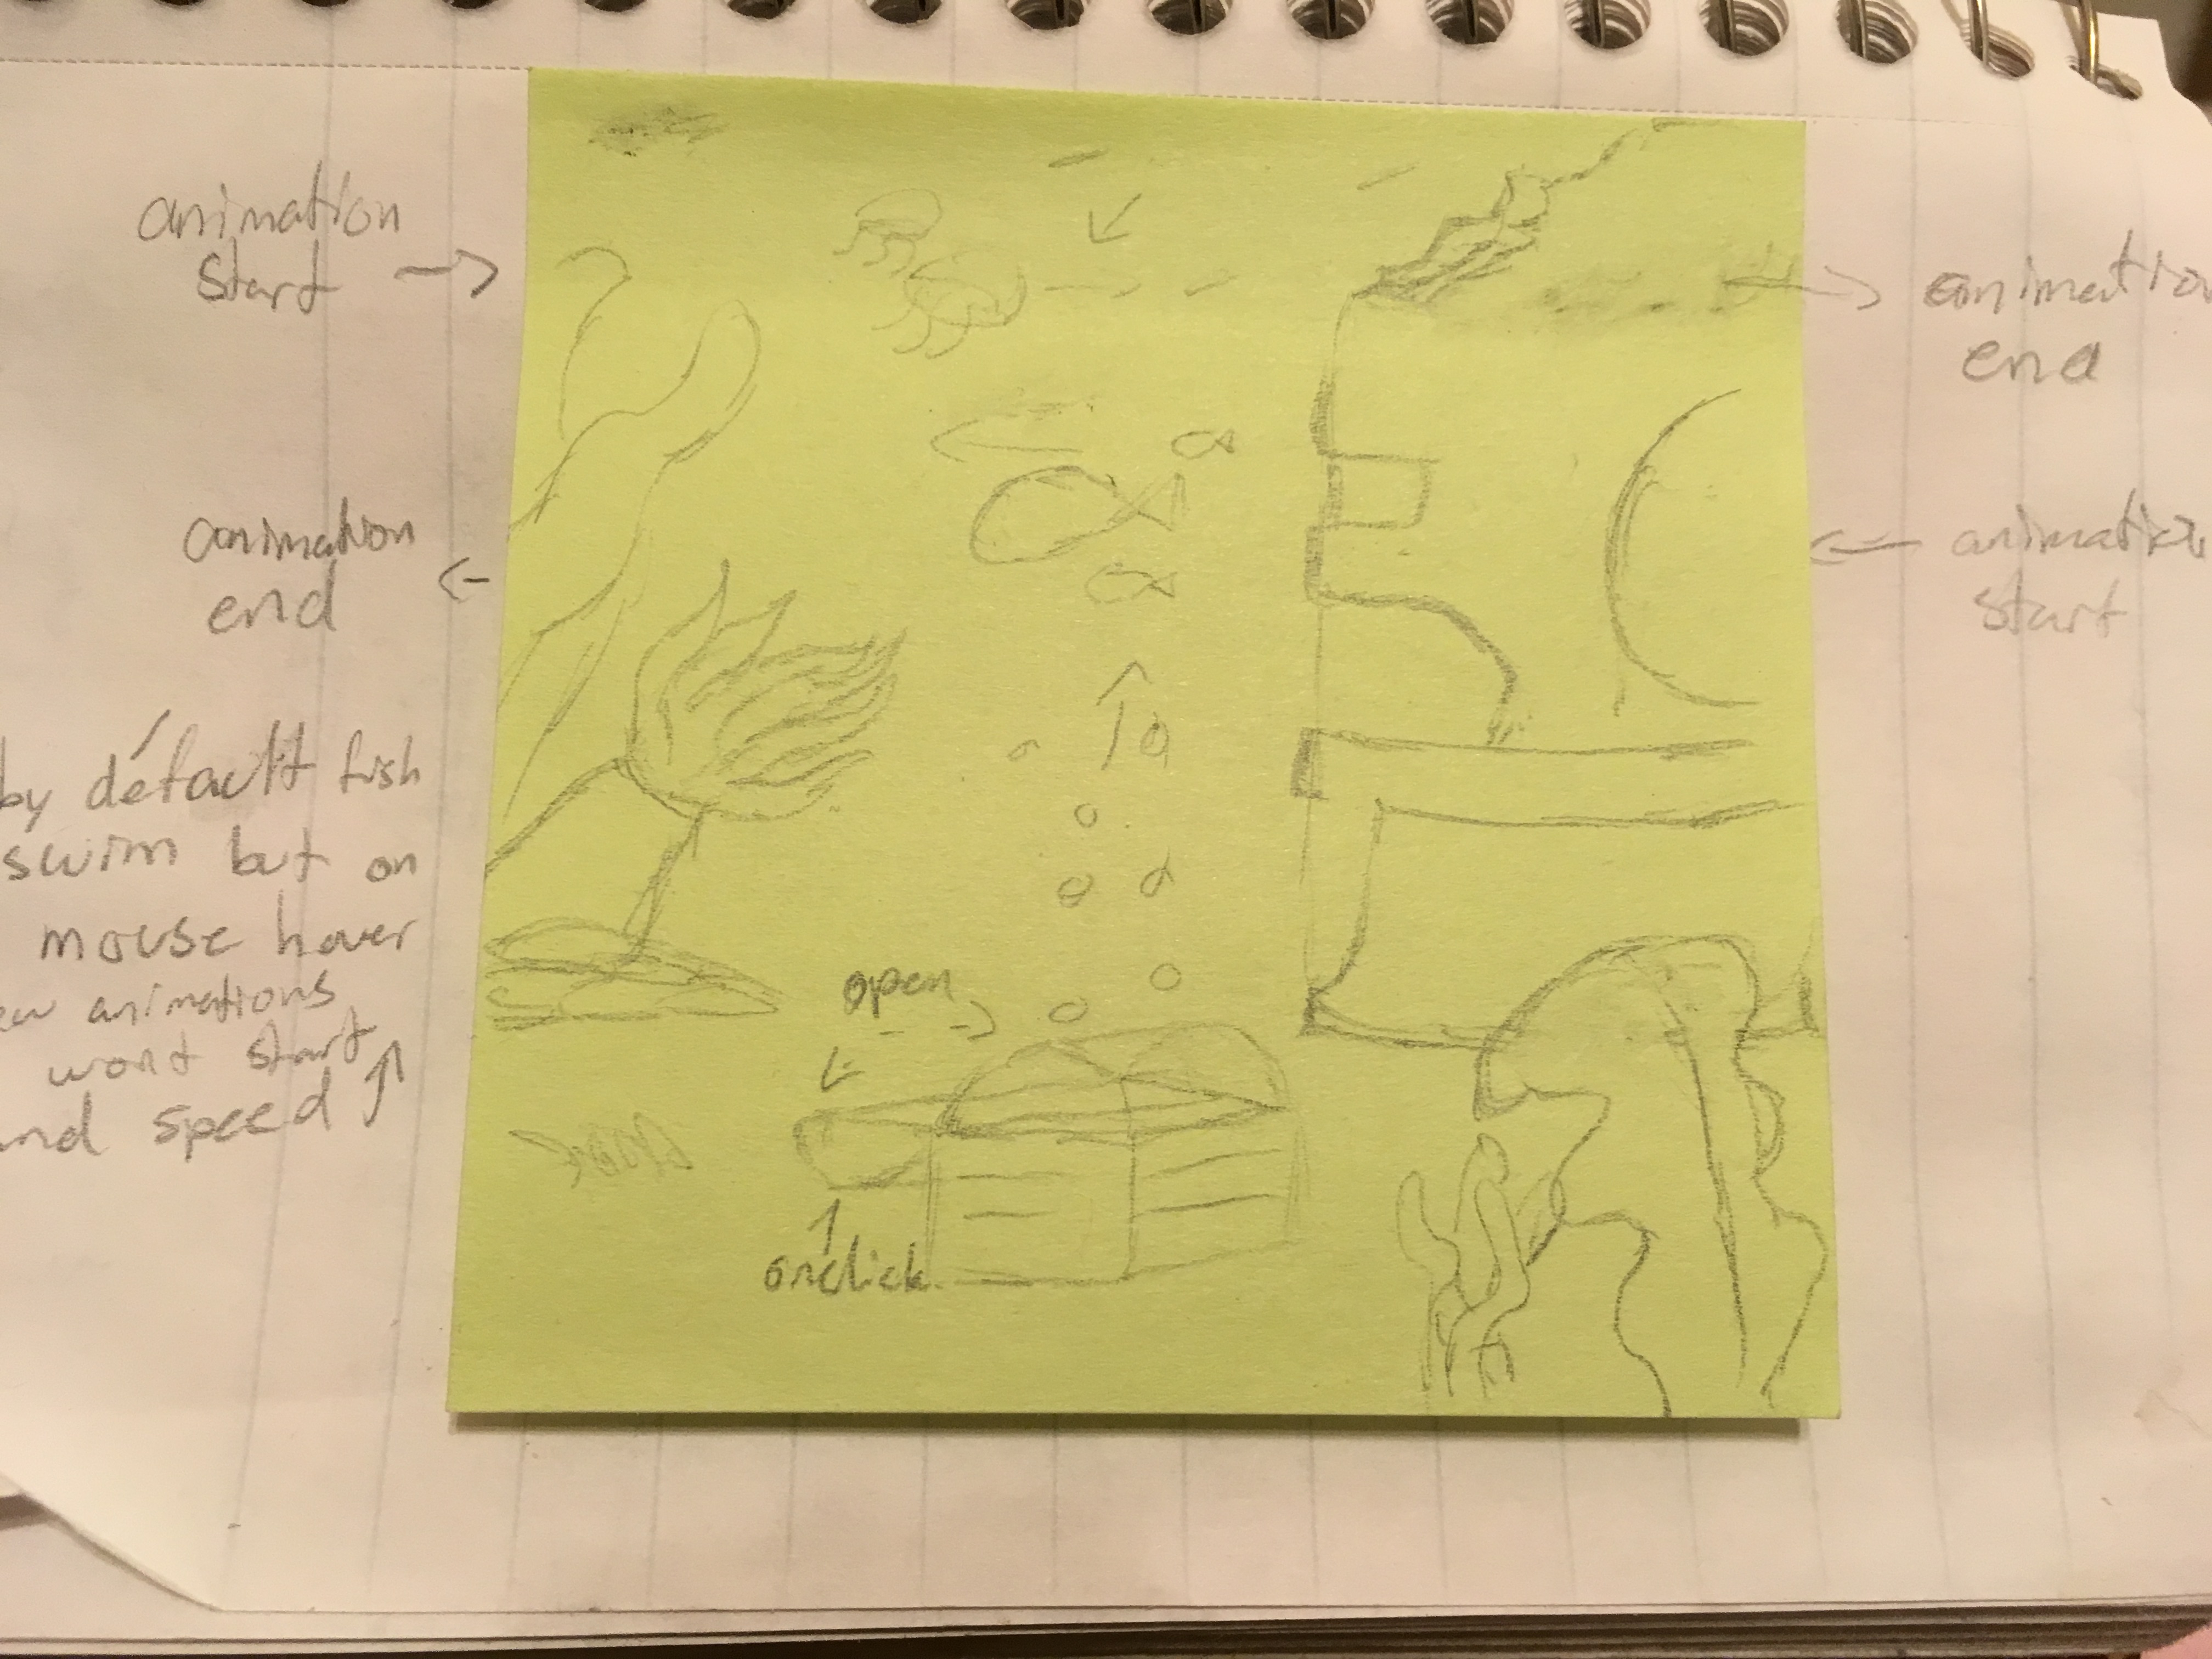 animation
start
animation
end
by default fish
swim but on
mouse hover
animations
wont start
and speed
open
onclick
animation
end
animation
start